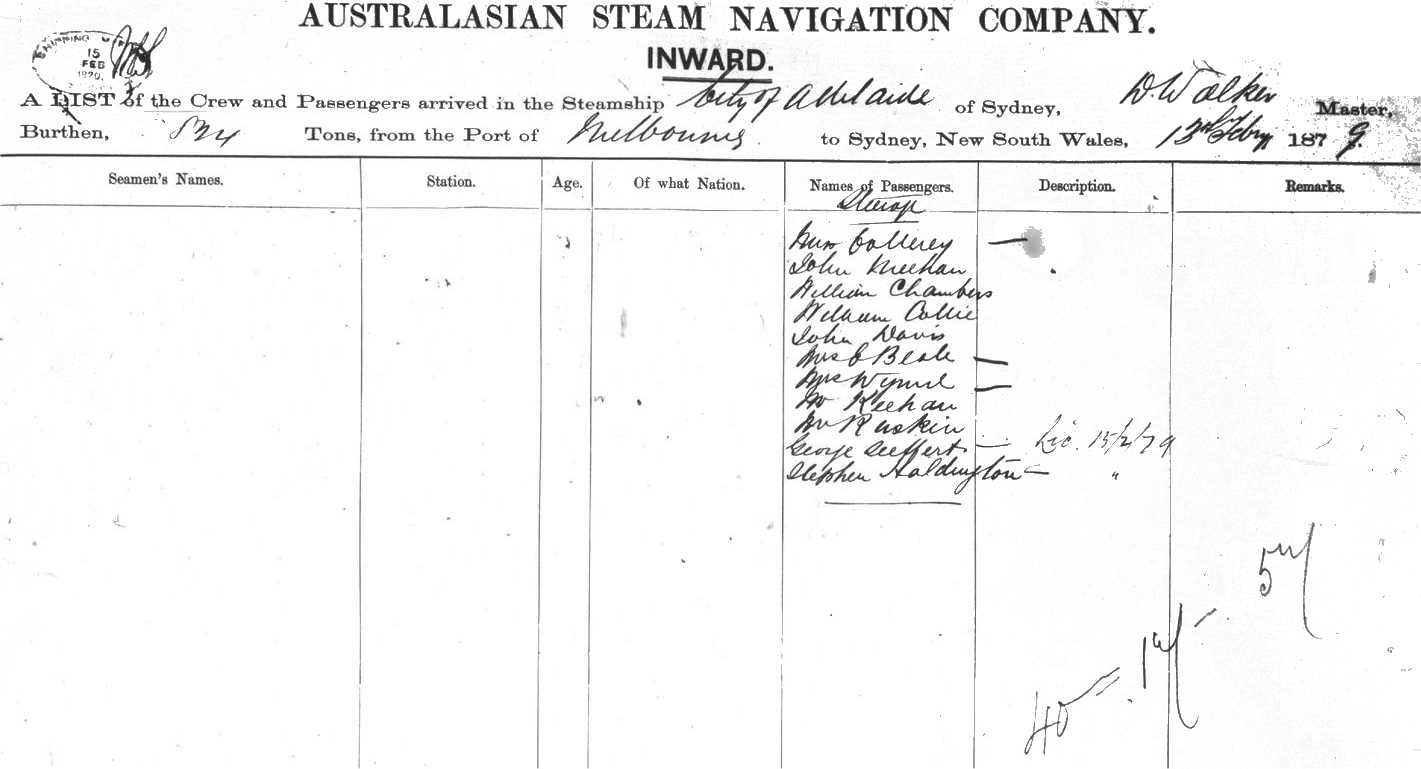 AUSTRALASIAN STEAM NAVIGATION COMPANY.
INWARD.
SHIPPING
15
FEB
A LIST of the Crew and Passengers arrived in the Steamship City of Adelaide of Sydney, D Walker Master,
Burthen, 824 Tons, from the Port of Melbourne to Sydney, New South Wales, 13th Febry 1879.
Seamen's Names. Station. Age. Of what Nation. Names of Passengers. Description. Remarks.
Steerage
Miss Collerey
John Meehan
William Chambers
William Collie
John Davis
Mrs C Beale
Mrs Wynne
Mr Keehan
Mr Ruskin
George Seeffert
Stephen Haldington "
15/2/79
40